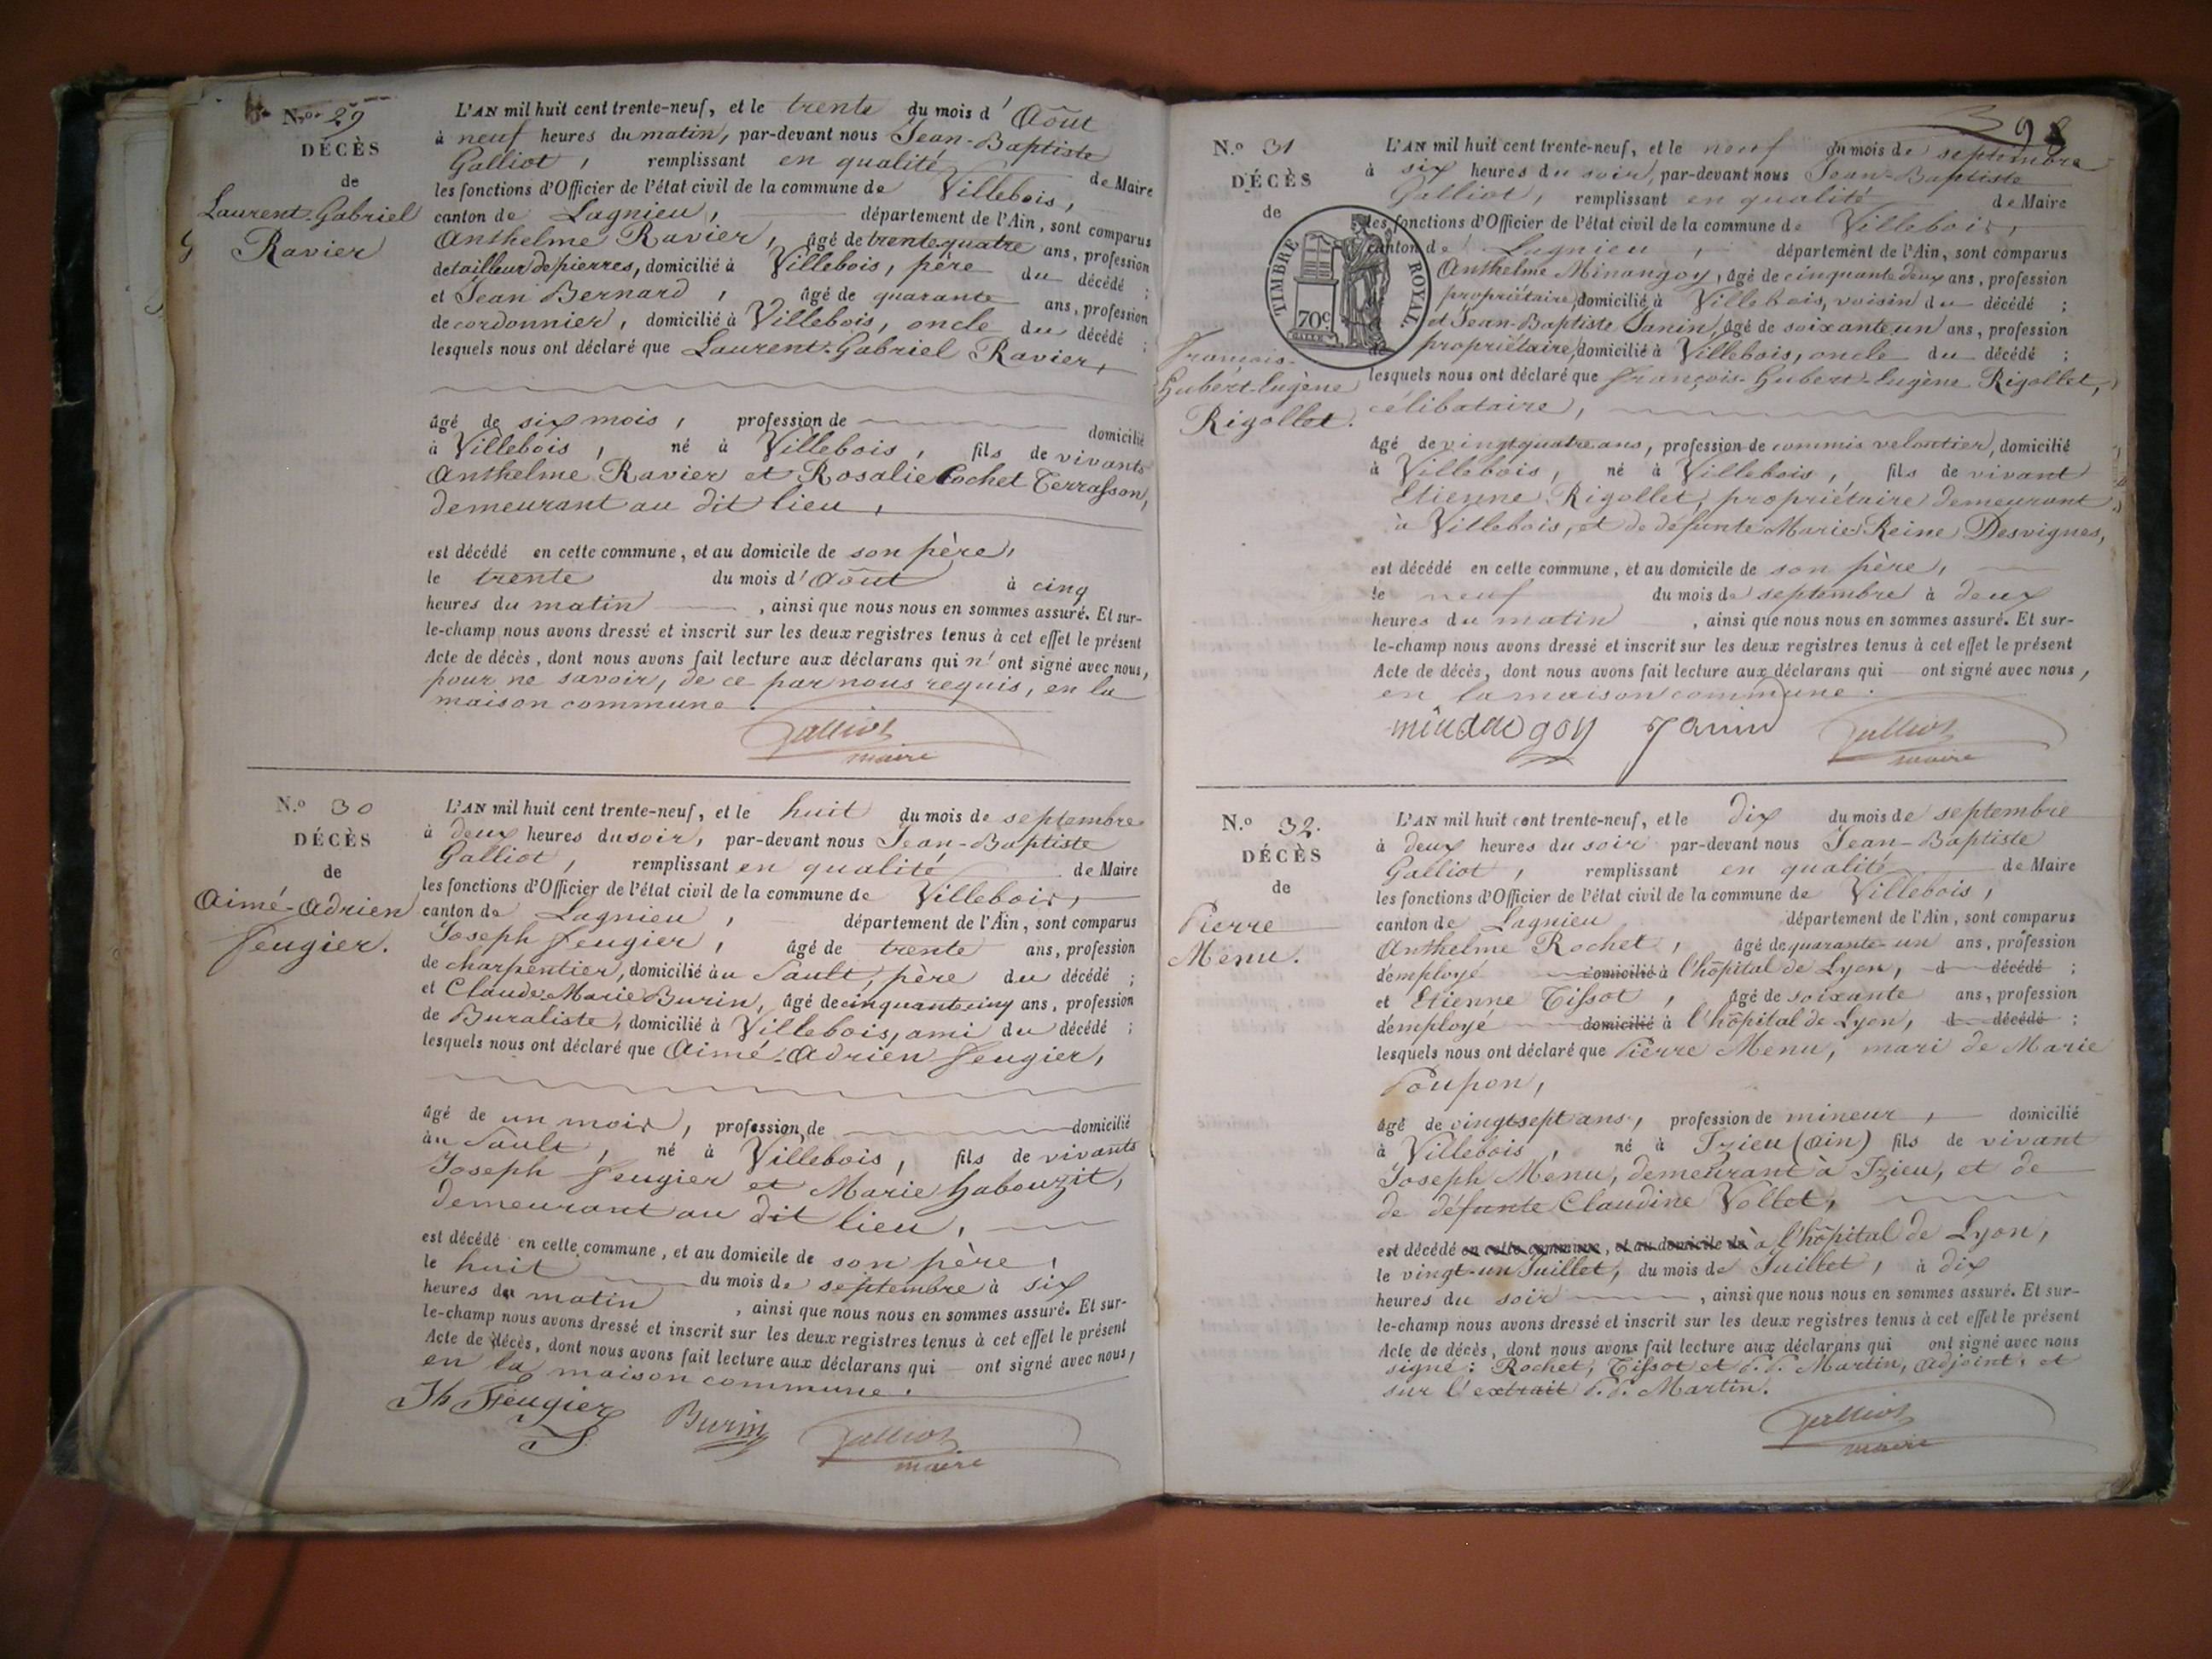 N.º 29
DÉCÈS
de
Laurent-Gabriel
Ravier
L'AN mil huit cent trente-neuf, et le trente du mois d'Août
à neuf heures du matin, par-devant nous Jean-Baptiste
Galliot, remplissant en qualité de Maire
les fonctions d'Officier de l'état civil de la commune de Villebois,
canton de Lagnieu, département de l'Ain, sont comparus
Anthelme Ravier, âgé de trente quatre ans, profession
de tailleur de pierres, domicilié à Villebois, père du décédé ;
et Jean Bernard, âgé de quarante ans, profession
de cordonnier, domicilié à Villebois, oncle du décédé ;
lesquels nous ont déclaré que Laurent-Gabriel Ravier,
âgé de six mois, profession de domicilié
à Villebois, né à Villebois, fils de vivants
Anthelme Ravier et Rosalie Cochet Terrasson,
demeurant au dit lieu,
est décédé en cette commune, et au domicile de son père,
le trente du mois d'Août à cinq
heures du matin, ainsi que nous nous en sommes assuré. Et sur-
le-champ nous avons dressé et inscrit sur les deux registres tenus à cet effet le présent
Acte de décès, dont nous avons fait lecture aux déclarans qui n'ont signé avec nous,
pour ne savoir, de ce par nous requis, en la
maison commune.
Galliot
maire
N.º 30
DÉCÈS
de
Aimé-Adrien
Feugier.
L'AN mil huit cent trente-neuf, et le huit du mois de septembre
à deux heures du soir, par-devant nous Jean-Baptiste
Galliot, remplissant en qualité de Maire
les fonctions d'Officier de l'état civil de la commune de Villebois,
canton de Lagnieu, département de l'Ain, sont comparus
Joseph Feugier, âgé de trente ans, profession
de charpentier, domicilié au Sault, père du décédé ;
et Claude-Marie Burin, âgé de cinquante cinq ans, profession
de Buraliste, domicilié à Villebois, ami du décédé ;
lesquels nous ont déclaré que Aimé-Adrien Feugier,
âgé de un mois, profession de domicilié
au Sault, né à Villebois, fils de vivants
Joseph Feugier et Marie Gabouzit,
demeurant au dit lieu,
est décédé en cette commune, et au domicile de son père,
le huit du mois de septembre à six
heures du matin, ainsi que nous nous en sommes assuré. Et sur-
le-champ nous avons dressé et inscrit sur les deux registres tenus à cet effet le présent
Acte de décès, dont nous avons fait lecture aux déclarans qui ont signé avec nous,
en la maison commune.
Jh Feugier Burin Galliot
maire
398
N.º 31
DÉCÈS
de
TIMBRE ROYAL.
70c
François-
Hubert-Eugène
Rigollet.
L'AN mil huit cent trente-neuf, et le neuf du mois de septembre
à six heures du soir, par-devant nous Jean-Baptiste
Galliot, remplissant en qualité de Maire
les fonctions d'Officier de l'état civil de la commune de Villebois,
canton de Lagnieu, département de l'Ain, sont comparus
Anthelme Minangoy, âgé de cinquante deux ans, profession
propriétaire, domicilié à Villebois, voisin du décédé ;
et Jean-Baptiste Janin, âgé de soixante un ans, profession
de propriétaire, domicilié à Villebois, oncle du décédé ;
lesquels nous ont déclaré que François-Hubert-Eugène Rigollet,
célibataire,
âgé de vingt quatre ans, profession de commis veloutier, domicilié
à Villebois, né à Villebois, fils de vivant
Etienne Rigollet, propriétaire demeurant
à Villebois, et de défunte Marie Reine Desvignes,
est décédé en cette commune, et au domicile de son père,
le neuf du mois de septembre à deux
heures du matin, ainsi que nous nous en sommes assuré. Et sur-
le-champ nous avons dressé et inscrit sur les deux registres tenus à cet effet le présent
Acte de décès, dont nous avons fait lecture aux déclarans qui ont signé avec nous,
en la maison commune.
Janin Galliot
maire
N.º 32.
DÉCÈS
de
Pierre
Menu.
L'AN mil huit cent trente-neuf, et le dix du mois de septembre
à deux heures du soir par-devant nous Jean-Baptiste
Galliot, remplissant en qualité de Maire
les fonctions d'Officier de l'état civil de la commune de Villebois,
canton de Lagnieu département de l'Ain, sont comparus
Anthelme Rochet, âgé de quarante-un ans, profession
d'employé domicilié à l'hôpital de Lyon, d décédé ;
et Etienne Tissot, âgé de soixante ans, profession
d'employé domicilié à l'hôpital de Lyon, d décédé ;
lesquels nous ont déclaré que Pierre Menu, mari de Marie
Poupon,
âgé de vingt-sept ans, profession de mineur, domicilié
à Villebois, né à Izieu (Ain) fils de vivant
Joseph Menu, demeurant à Izieu, et de
de défunte Claudine Vollet,
est décédé en cette commune, et au domicile de à l'hôpital de Lyon,
le vingt-un Juillet, du mois de Juillet, à dix
heures du soir, ainsi que nous nous en sommes assuré. Et sur-
le-champ nous avons dressé et inscrit sur les deux registres tenus à cet effet le présent
Acte de décès, dont nous avons fait lecture aux déclarans qui ont signé avec nous
signé : Rochet, Tissot et P.P. Martin, adjoint, et
sur l'extrait P.P. Martin.
Galliot
maire